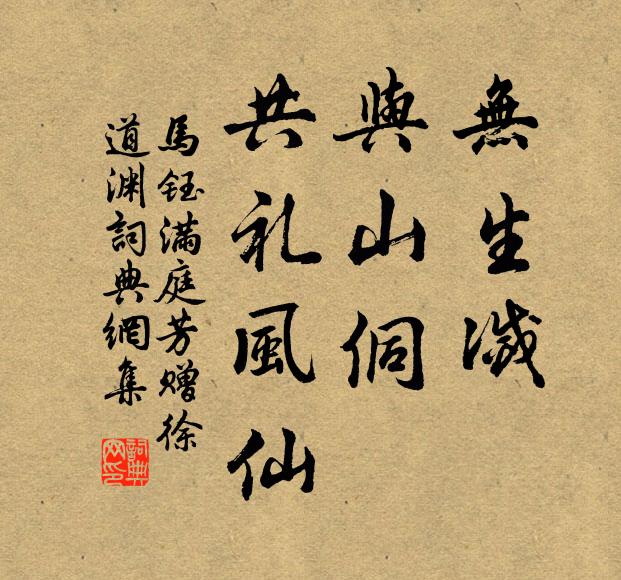 無生滅
與山侗
共礼風仙
馬鈺满庭芳赠徐
道渊詞典網集
詞典网印